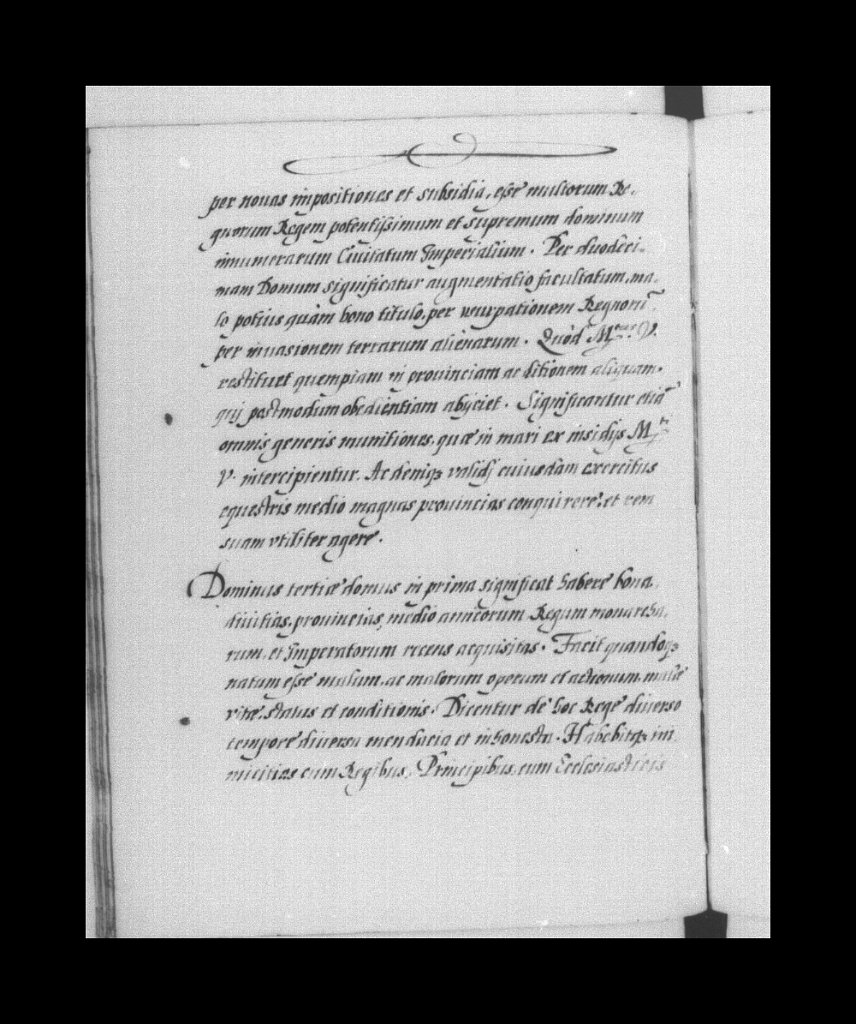 per nouas impositiones et subsidia, esse multorum Re-
gnorum Regem potentissimum et supremum dominum
innumerarum Ciuitatum Imperialium. Per duodeci-
mam Domum significatur augmentatio facultatum, ma-
lo potius quàm bono titulo, per vsurpationem Regnorũ,
per inuasionem terrarum alienarum. Quòd M.tas V.
restituet quempiam in prouinciam ac ditionem aliquam,
qui postmodum obedientiam abijciet. Significantur etiã
omnis generis munitiones, quæ in mari ex insidijs M.tis
V. intercipientur. Ac deniq; validj cuiusdam exercitus
equestris medio magnas prouincias conquirere, et rem
suam vtiliter agere.
Dominus tertiæ domus in prima significat habere bona,
diuitias, prouincias, medio armorum Regum monarcha-
rum, et Imperatorum recens acquisitas. Facit quandoq;
natum esse malum, ac malorum operum et actionum, malæ
vitæ, status et conditionis. Dicentur de hoc Rege diuerso
tempore diuersa mendacia et inhonesta. Habebitq; ini
micitias cum Regibus, Principibus, cum Ecclesiasticis